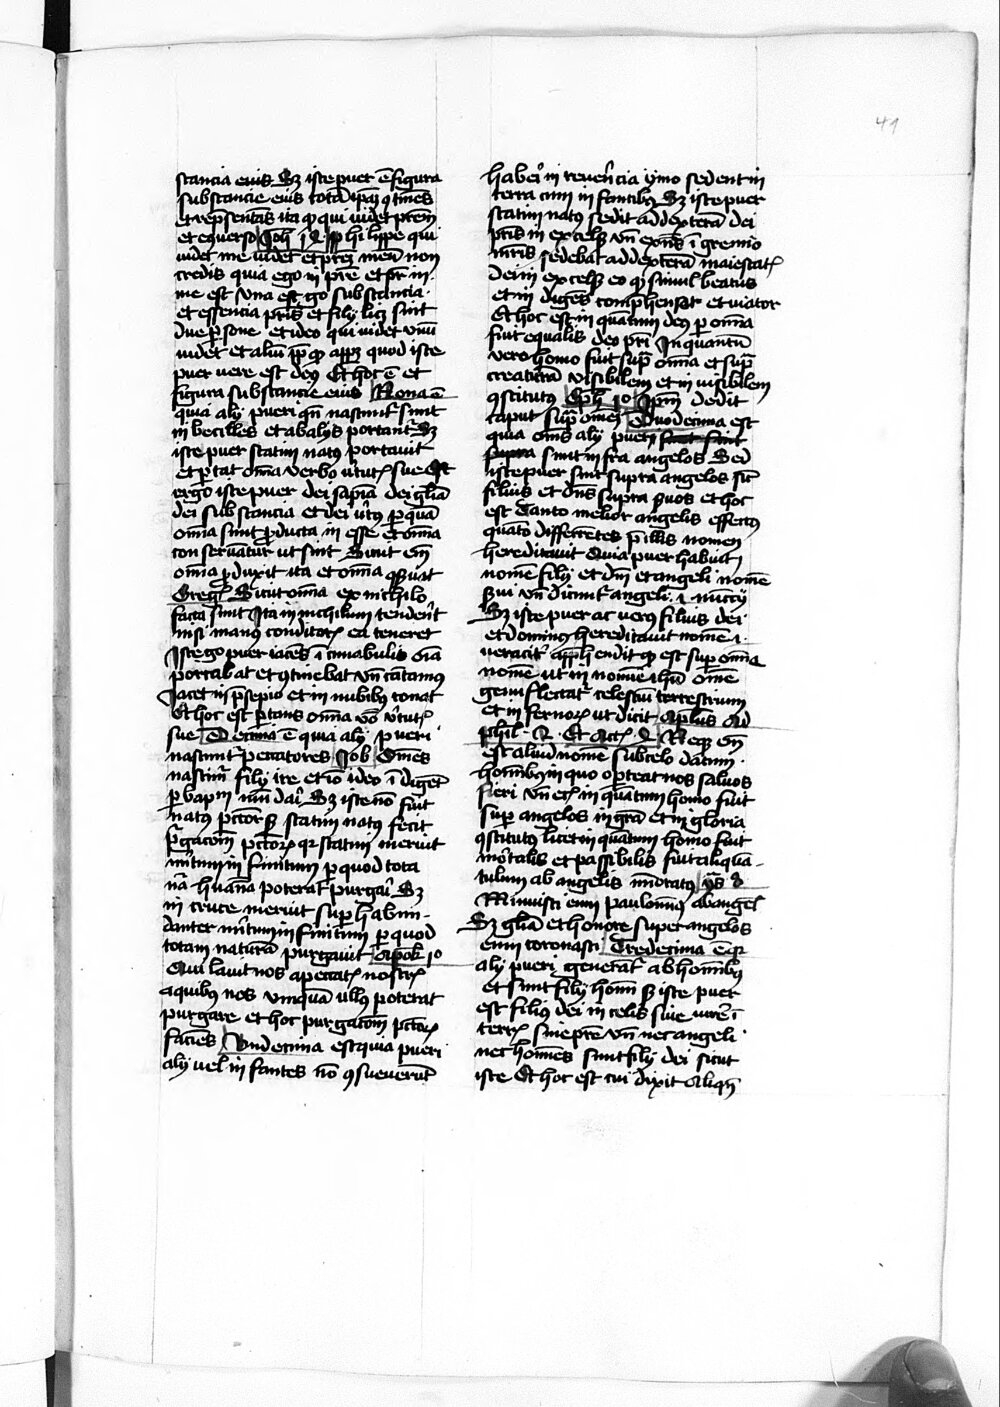 41
stancia eius Sꝫ iste puer ē figura
substancie eius totā ipaꝫ ɔtinēs
et rep̄sentās ita ꝙ qui uidet prēm
et equerso Joh̄ Philippe qui
uidet me uidet et prēꝫ meū non
credis quia ego in prē et pr̄ in
me est Una est gͦ substancia
et essencia pris et filij licꝫ sint
due ꝑsone et ideo qui uidet unū
uidet et aliū quod iste
puer uere est deꝰ Et hoc ē et
figura substancie eius Nona ē
quia alij pueri qn̄ nascunt᷑ sunt
inbecilles et ab alijs portant᷑ Sꝫ
iste puer statim natꝰ portauit
et portat om̄ia uerbo u̓tutꝭ sue Est
ergo iste puer dei sapīa dei gl̄ia
dei substancia et dei u̓tus ꝑ quā
om̄ia sunt ꝓducta in esse et om̄ia
conseruāt᷑ ut sint Sicut em̄
om̄ia ꝓduxit ita et om̄ia ɔseruat
Greg᷑ Sicut om̄ia ex nichilo
facta sunt Ita in nichilum tenderēt
nisi manus conditorꝭ ea teneret
Iste gͦ puer iacēs ī cunabulis om̄ia
portabat et ɔtinebat vn̄ cātamus
Jacet in p̄sepio et in nubibꝰ tonat
Et hoc est portans om̄ia ubō u̓tutꝭ
sue Decima ē quia alij pueri
nascunt᷑ peccatores Job Om̄es
nascim᷑ filij ire et ideo īdigēt
ꝑ bapm̄ Sꝫ iste nō fuit
natꝰ pctor sꝫ statim natꝰ fecit
p̄gacōem pctorꝭ qꝛ statim meruit
m̓itum infinitum ꝑ quod tota
nā humana poterat purgari Sꝫ
in cruce meruit suꝑhabun-
danter m̓itum infinitum ꝑ quod
totam naturā purgauit Apok̄ 1ͦ
Qui lauit nos a peccatꝭ nostrꝭ
a quibus nos vnquā ullꝰ poterat
purgare et hoc purgacōem pctorꝭ
faciēs Vndecima est quia pueri
alij vel infantes nō ɔsueuerūt
haberi in reuerēcia ymo sedent in
terra cum infantibꝰ Sꝫ iste puer
statim natus sedit ad dexterā dei
pris in excelsꝭ vn̄ exn̄s ī gremio
mr̄is sedebat ad dexterā maiestatꝭ
dei in excelsꝭ eo ꝙ simul beatus
et comphensor et uiator
Et hoc est in quātum deꝰ ꝑ om̄ia
fuit equalis deo pri In quantū
vero homo fuit sup̄ om̄ia et sup̄
creaturā visibilem et inuisibilem
ɔstitutꝰ Eph̄ 1ͦ Ipm̄ dedit
caput sup̄ om̄es Duodecima est
quia om̄s alij pueri
sunt infra angelos Sed
iste puer fuit supra angelos sic
filius et dn̄s supra suos et hoc
est Tanto melior angelis effectꝰ
quāto differētes p̄ illis nomen
hereditauit Quia puer habuit
nomē filij et dn̄i et angeli nomē
Sui vn̄ dicunt᷑ angeli ·i· nuncij
Sꝫ iste puer ac verꝰ filius dei
et dominꝰ hereditauit nomē ·i·
ueracit᷑ app̄hendit ꝙ est sup om̄ia
nomē ut in nomīe ihū om̄e
genu flectat᷑ celestiū terrestrium
et infernorꝭ ut dicit Apl̄us Ad
phil· 2· Et Act᷑ 4 Neqꝫ em̄
est aliud nomē sub celo datum
hominibꝰ in quo oporteat nos saluos
fieri Vn̄ etꝭ in quātum homo fuit
suꝑ angelos in grā et in gloria
ɔstitutꝰ licet in quātum homo fuit
mortalis et passibilis fuit aliquā-
tulum ab angelis minoratꝰ ps̄ 8
Minuisti eum paulominꝰ ab angel̄
Sꝫ gl̄ia et honore super angelos
eum coronasti Tredecima ē qꝛ
alij pueri generāt᷑ ab hominibꝰ
et sunt filij homī sꝫ iste puer
est filiꝰ dei in celis siue mr̄e ī
terrꝭ sine pr̄e vn̄ nec angeli
nec homīes sunt filij dei sicut
iste Et hoc est cui dixit aliqn̄